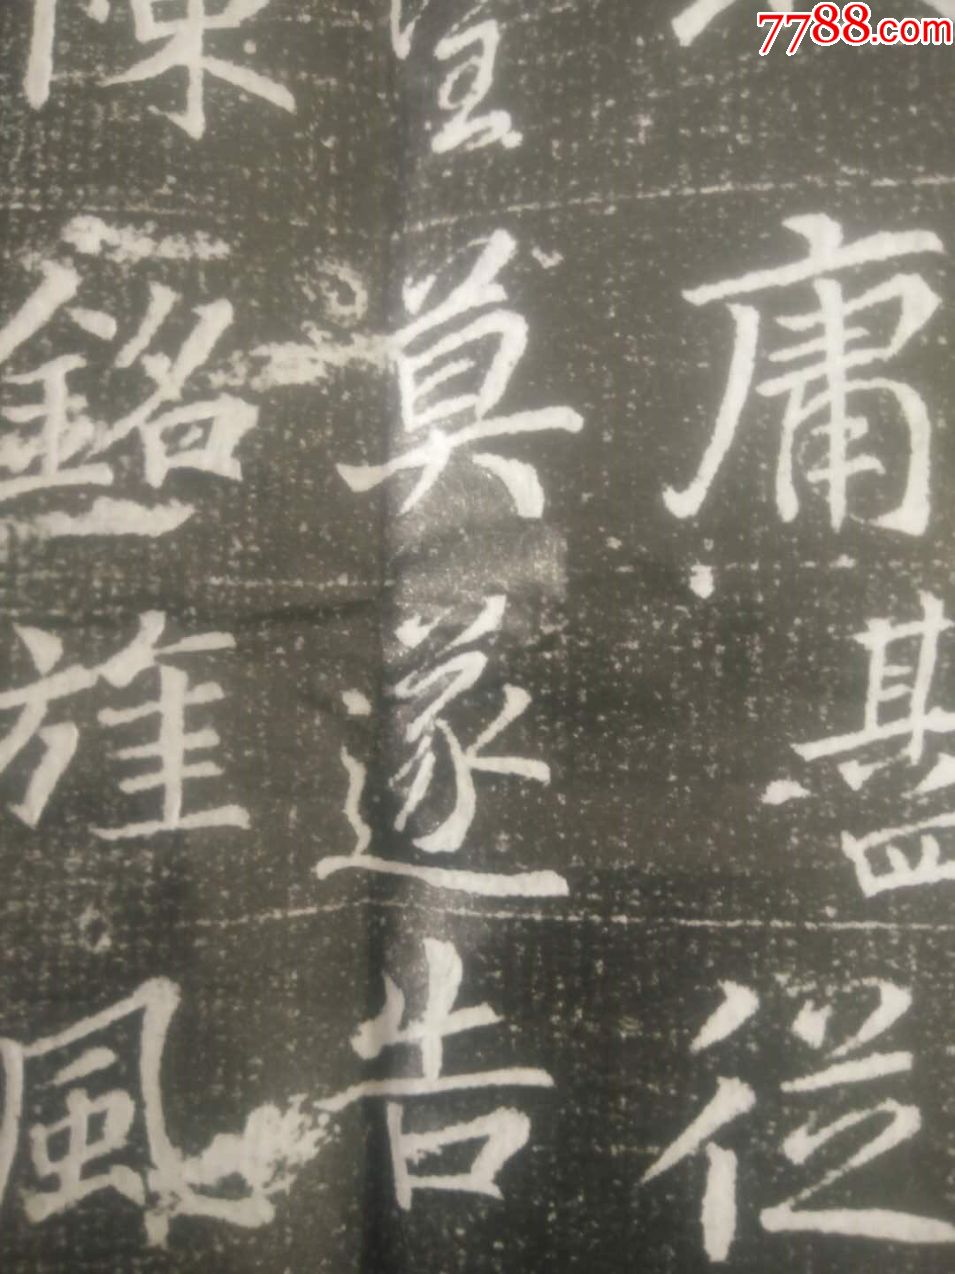 7788.com
庸從
莫遂告
陳銘旌風